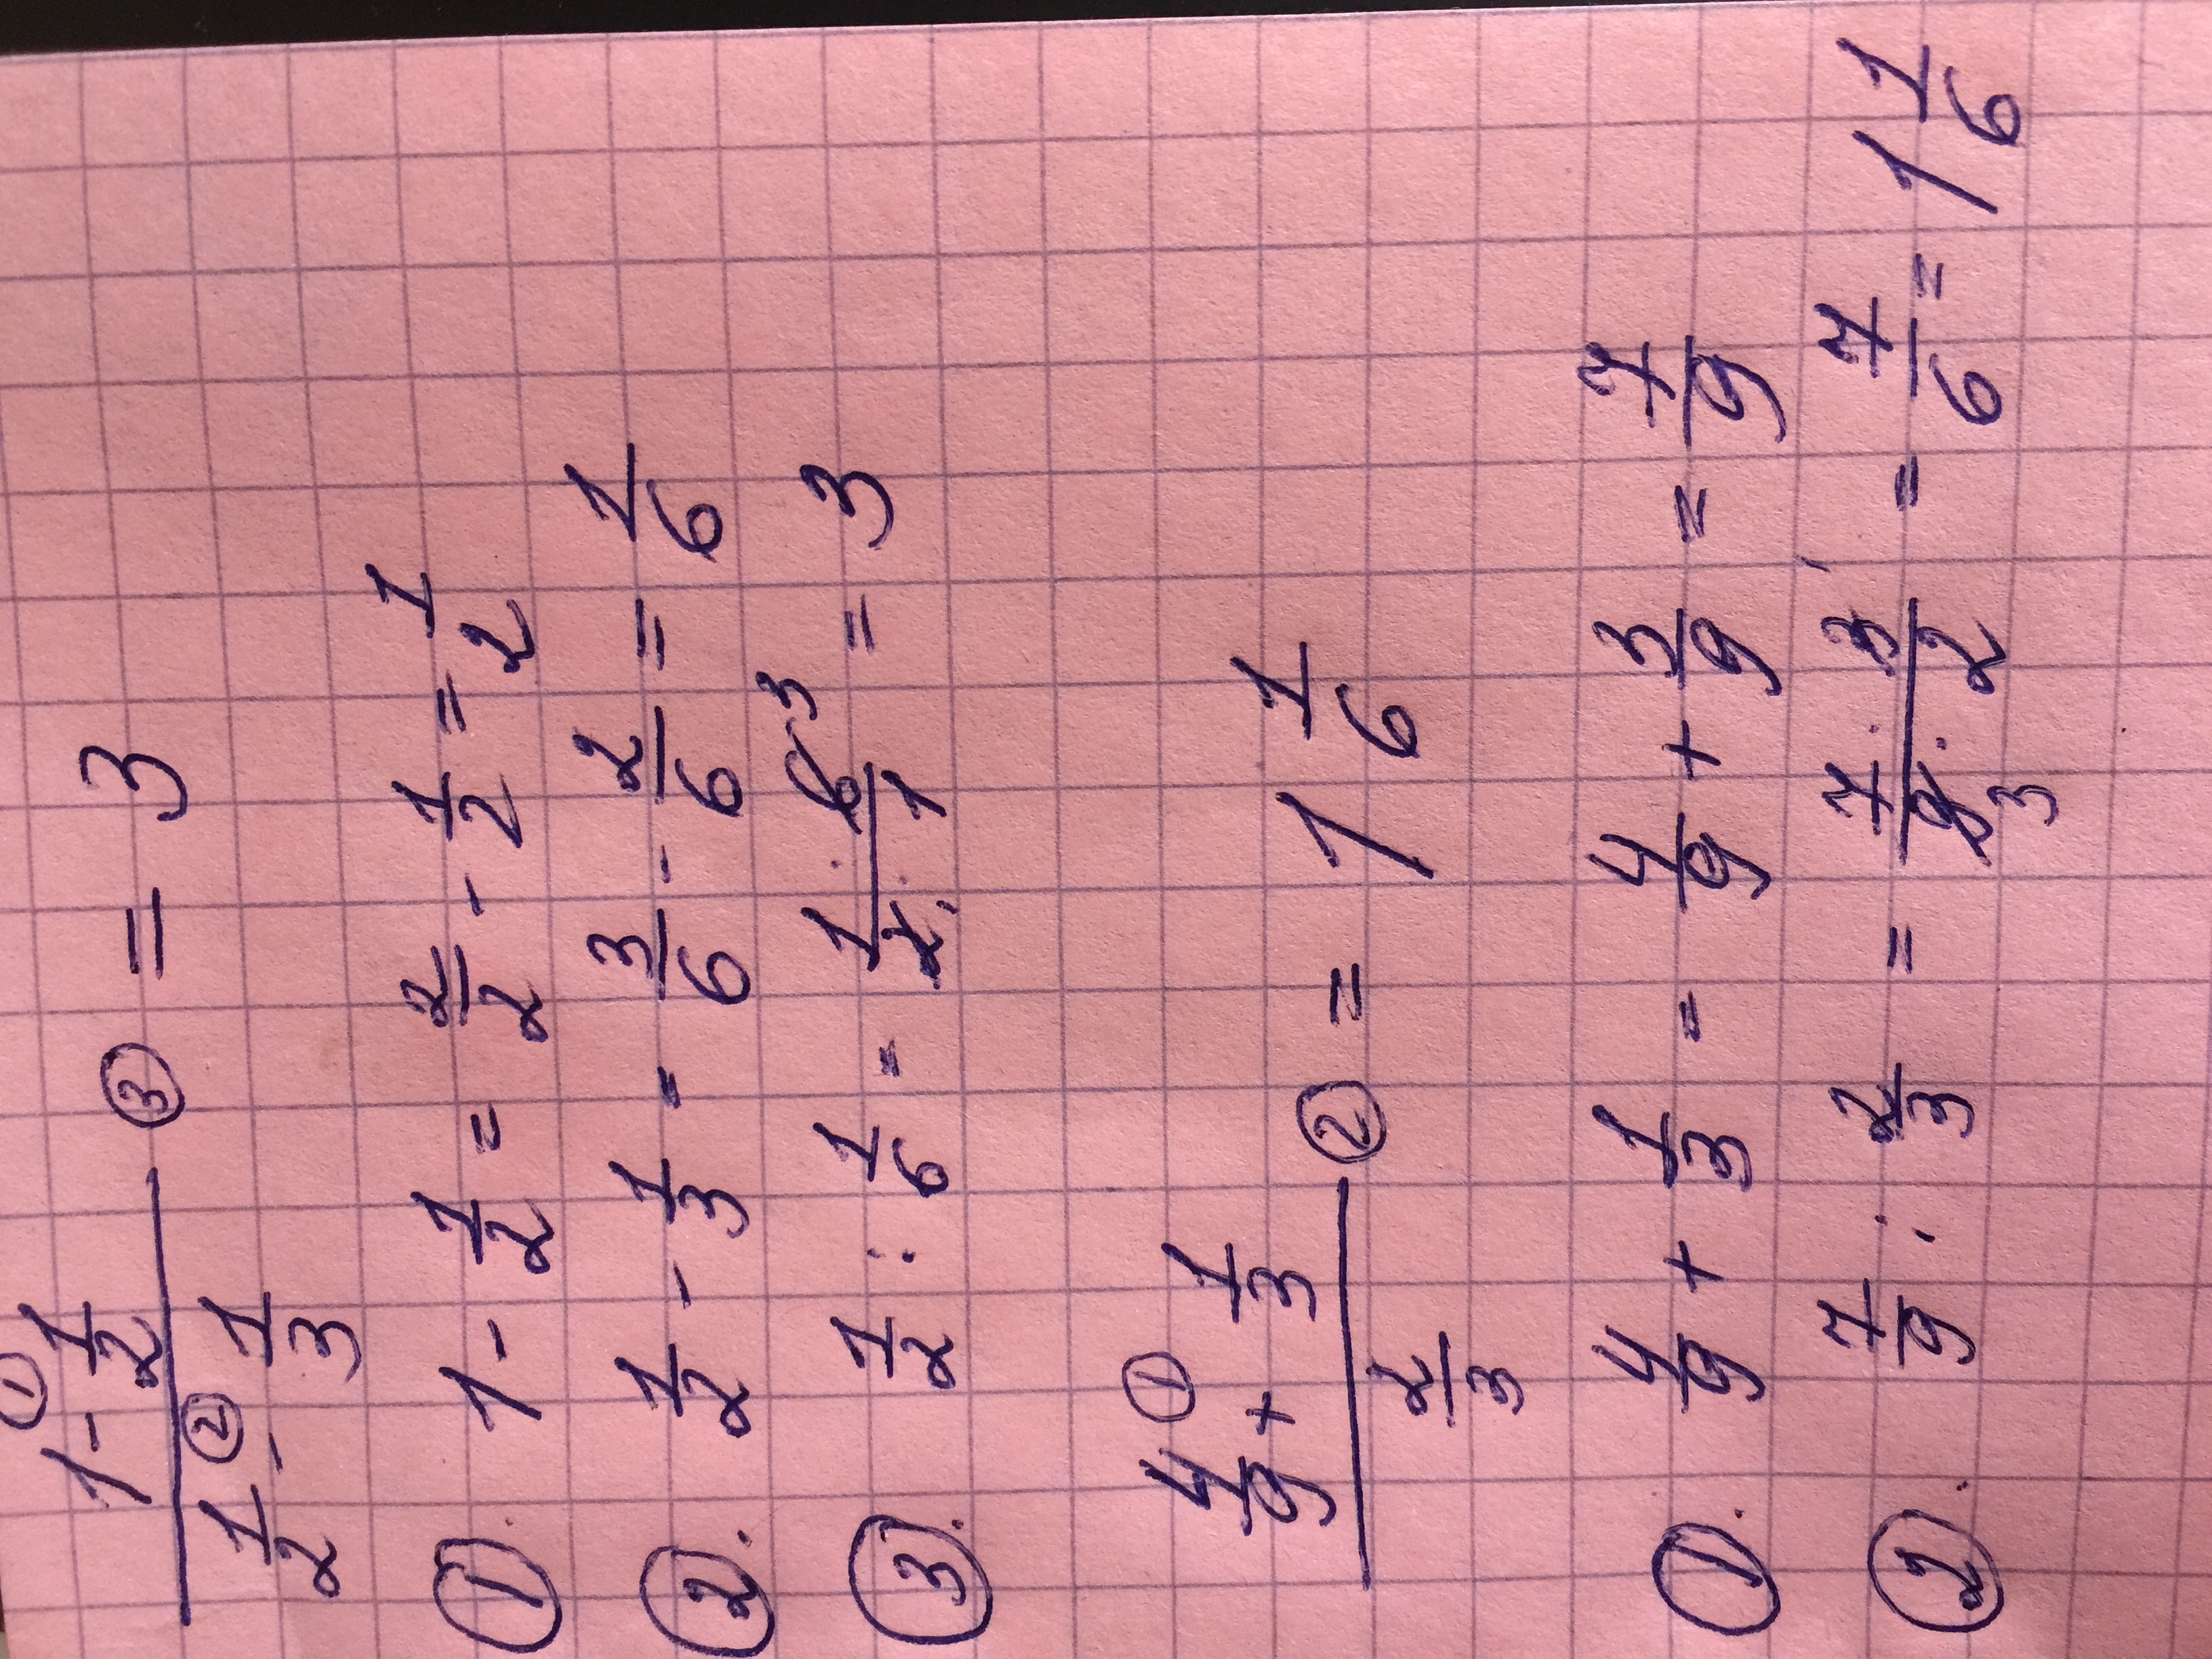 ① 1 - 1/2
② 1/2 - 1/3
③ = 3
① 1 - 1/2 = 2/2 - 1/2 = 1/2
②. 1/2 - 1/3 = 3/6 - 2/6 = 1/6
③. 1/2 : 1/6 = 1·6 3/2·1 = 3
① 4/9 + 1/3
2/3
② = 1 1/6
①. 4/9 + 1/3 = 4/9 + 3/9 = 7/9
②. 7/9 : 2/3 = 7·3/9·2 3 = 7/6 = 1 1/6